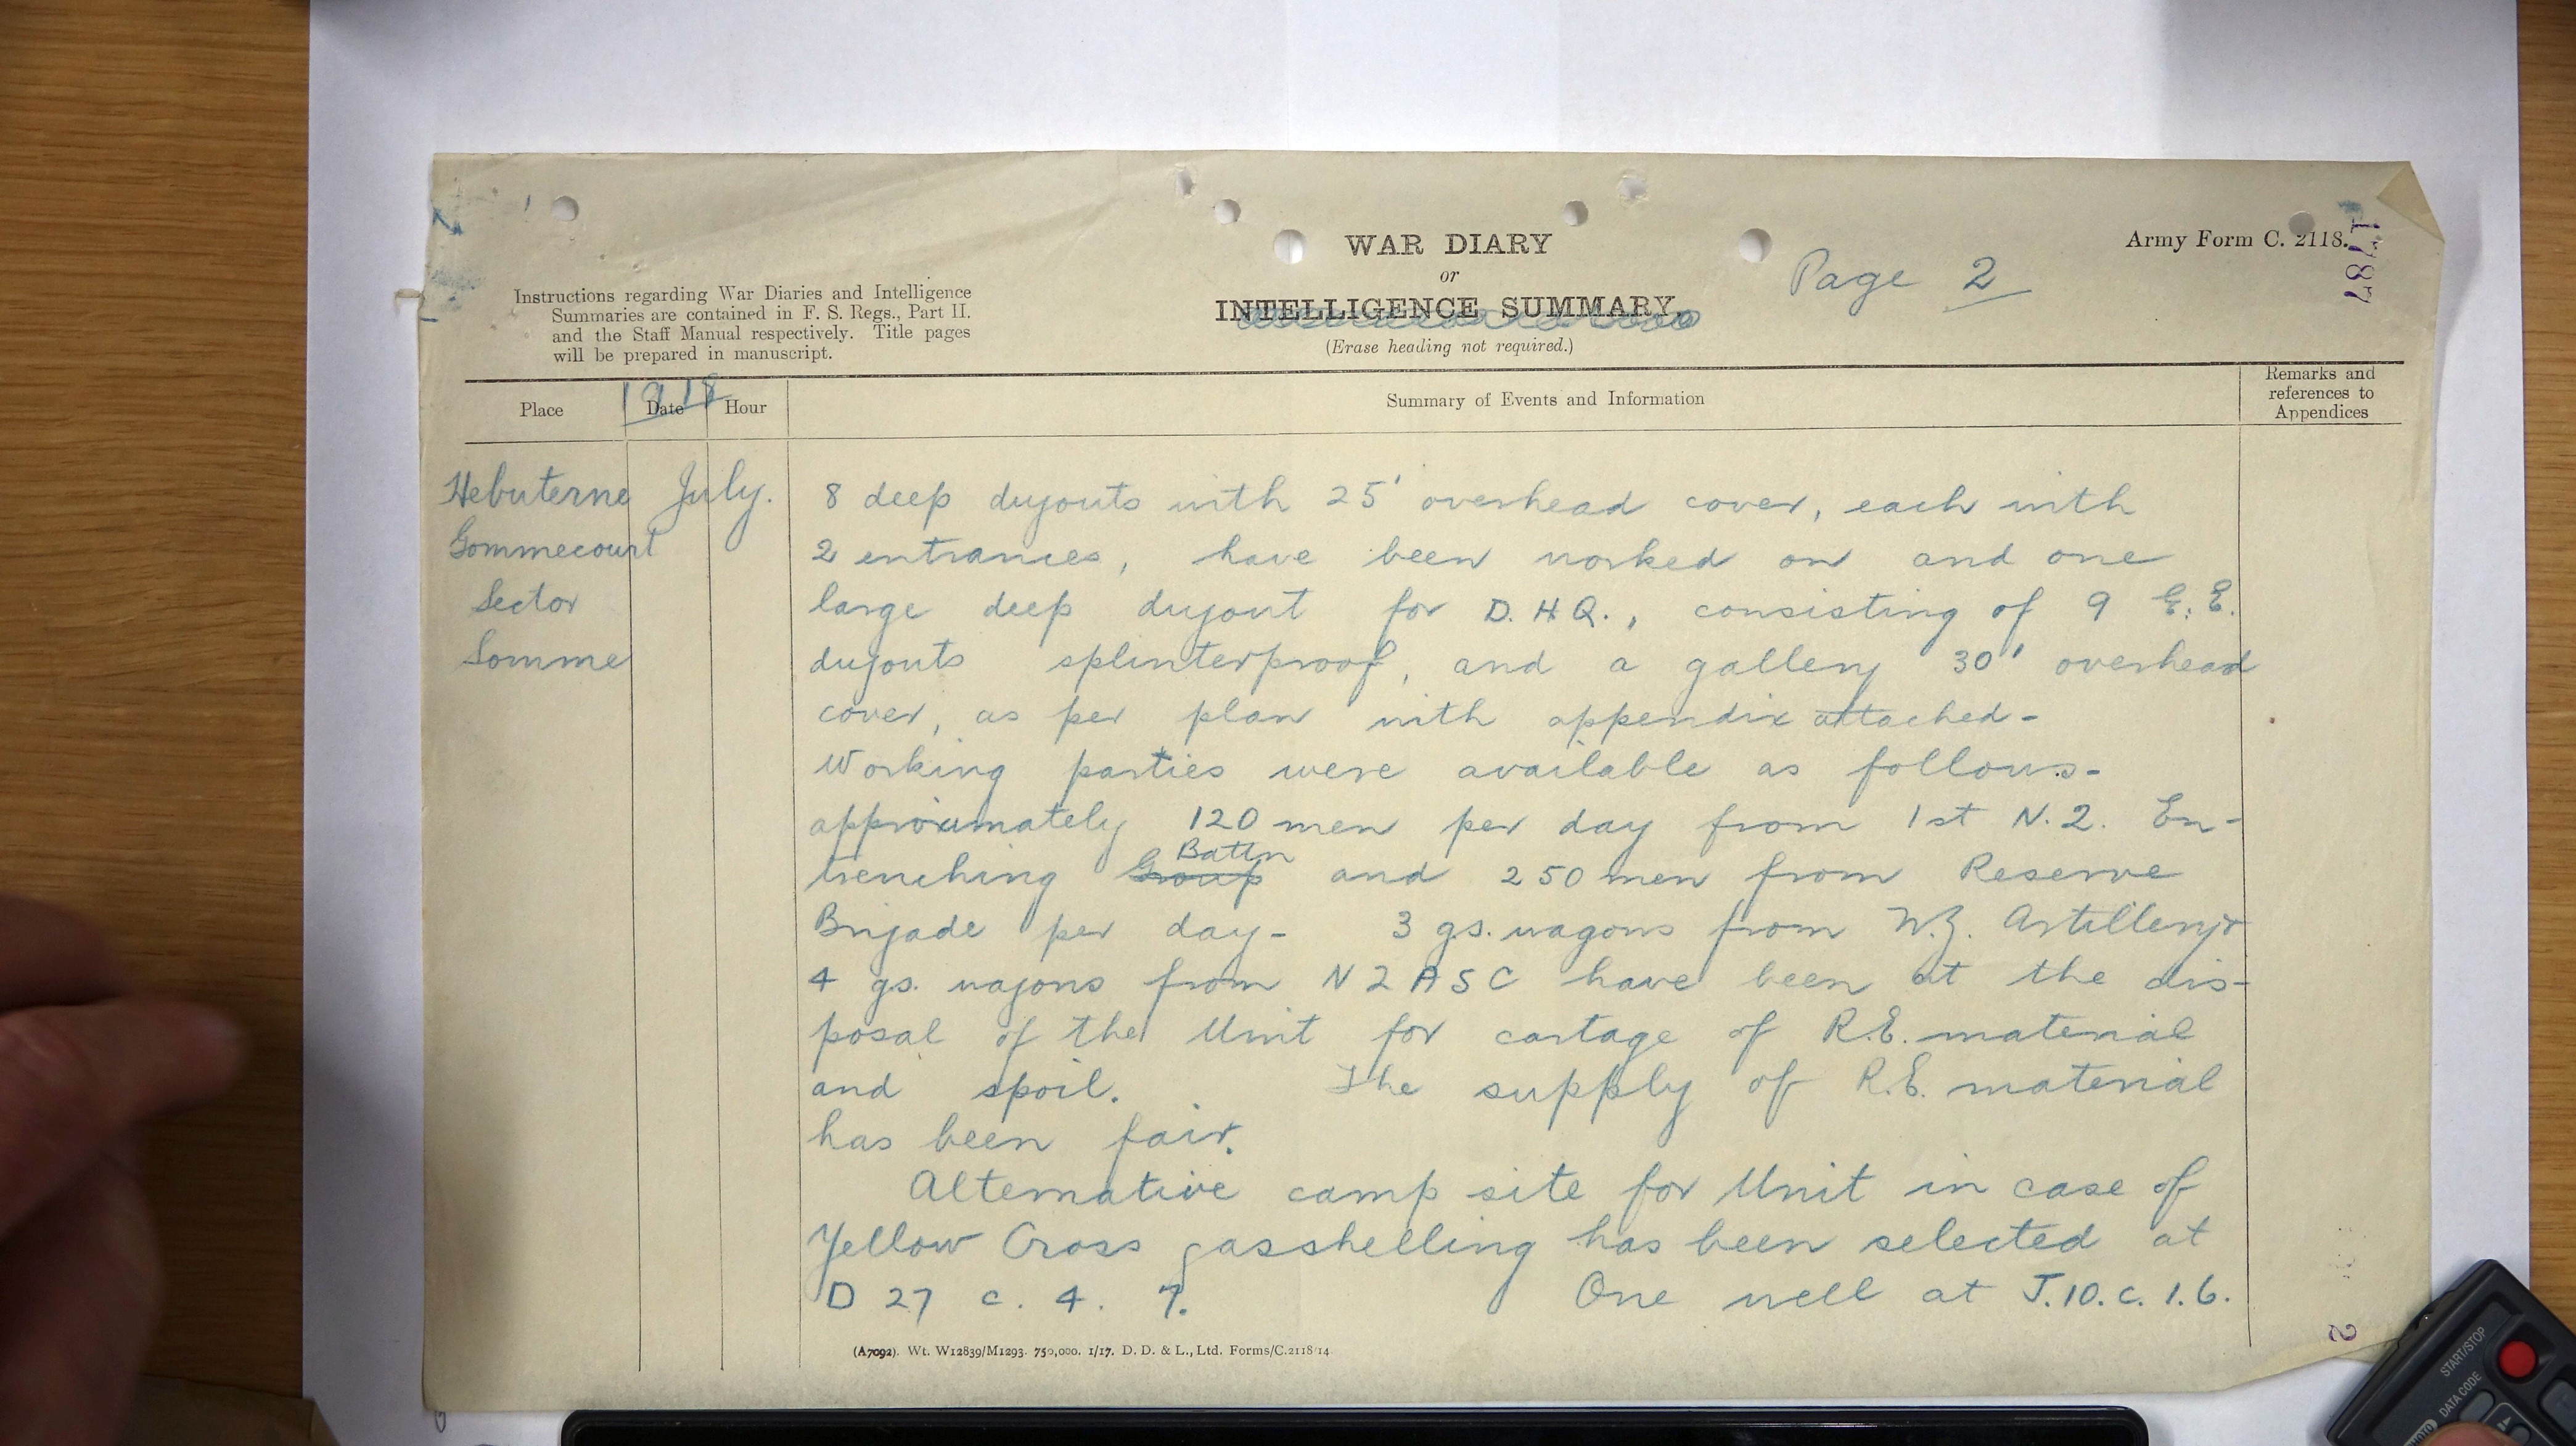 WAR DIARY
or
INTELLIGENCE SUMMARY.
(Erase heading not required.)
Page 2
Army Form C. 2118.
1787
Instructions regarding War Diaries and Intelligence
Summaries are contained in F. S. Regs., Part II.
and the Staff Manual respectively. Title pages
will be prepared in manuscript.
1918
Place
Date
Hour
Summary of Events and Information
Remarks and
references to
Appendices
Hebuterne
Gommecourt
Sector
Somme
July.
8 deep dugouts with 25' overhead cover, each with
2 entrances, have been worked on and one
large deep dugout for D.H.Q., consisting of 9 E.E.
dugouts splinterproof, and a gallery 30' overhead
cover, as per plan with appendix attached-
Working parties were available as follows.-
approximately 120 men per day from 1st N.Z. En-
trenching Group Battn and 250 men from Reserve
Brigade per day- 3 gs. wagons from N.Z. Artillery &
4 gs. wagons from NZASC have been at the dis-
posal of the Unit for cartage of R.E. material
and spoil. The supply of R.E. material
has been fair.
Alternative camp site for Unit in case of
Yellow Cross gasshelling has been selected at
D 27 c. 4. 7. One well at J.10.c.1.6.
(A7092). Wt. W12839/M1293. 750,000. 1/17. D. D. & L., Ltd. Forms/C.2118/14.
2
START/STOP
DATA CODE
PHOTO